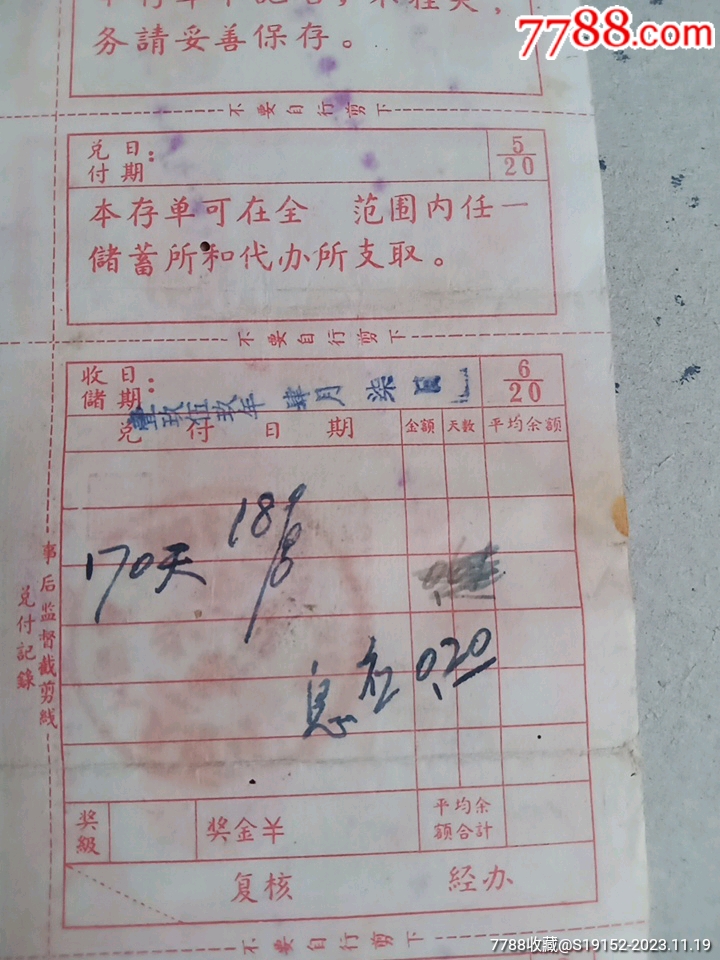 7788.com
务請妥善保存。
不要自行剪下
兑付日期：
5/20
本存单可在全 范围内任一
儲蓄所和代办所支取。
不要自行剪下
收儲日期：
壹玖伍玖年 肆月 柒日
6/20
兑付日期 金額 天数 平均余額
170天
息 0.20
事后监督截剪线
兑付記錄
奖級 奖金￥ 平均余額合計
复核 经办
不要自行剪下
7788收藏@S19152-2023.11.19